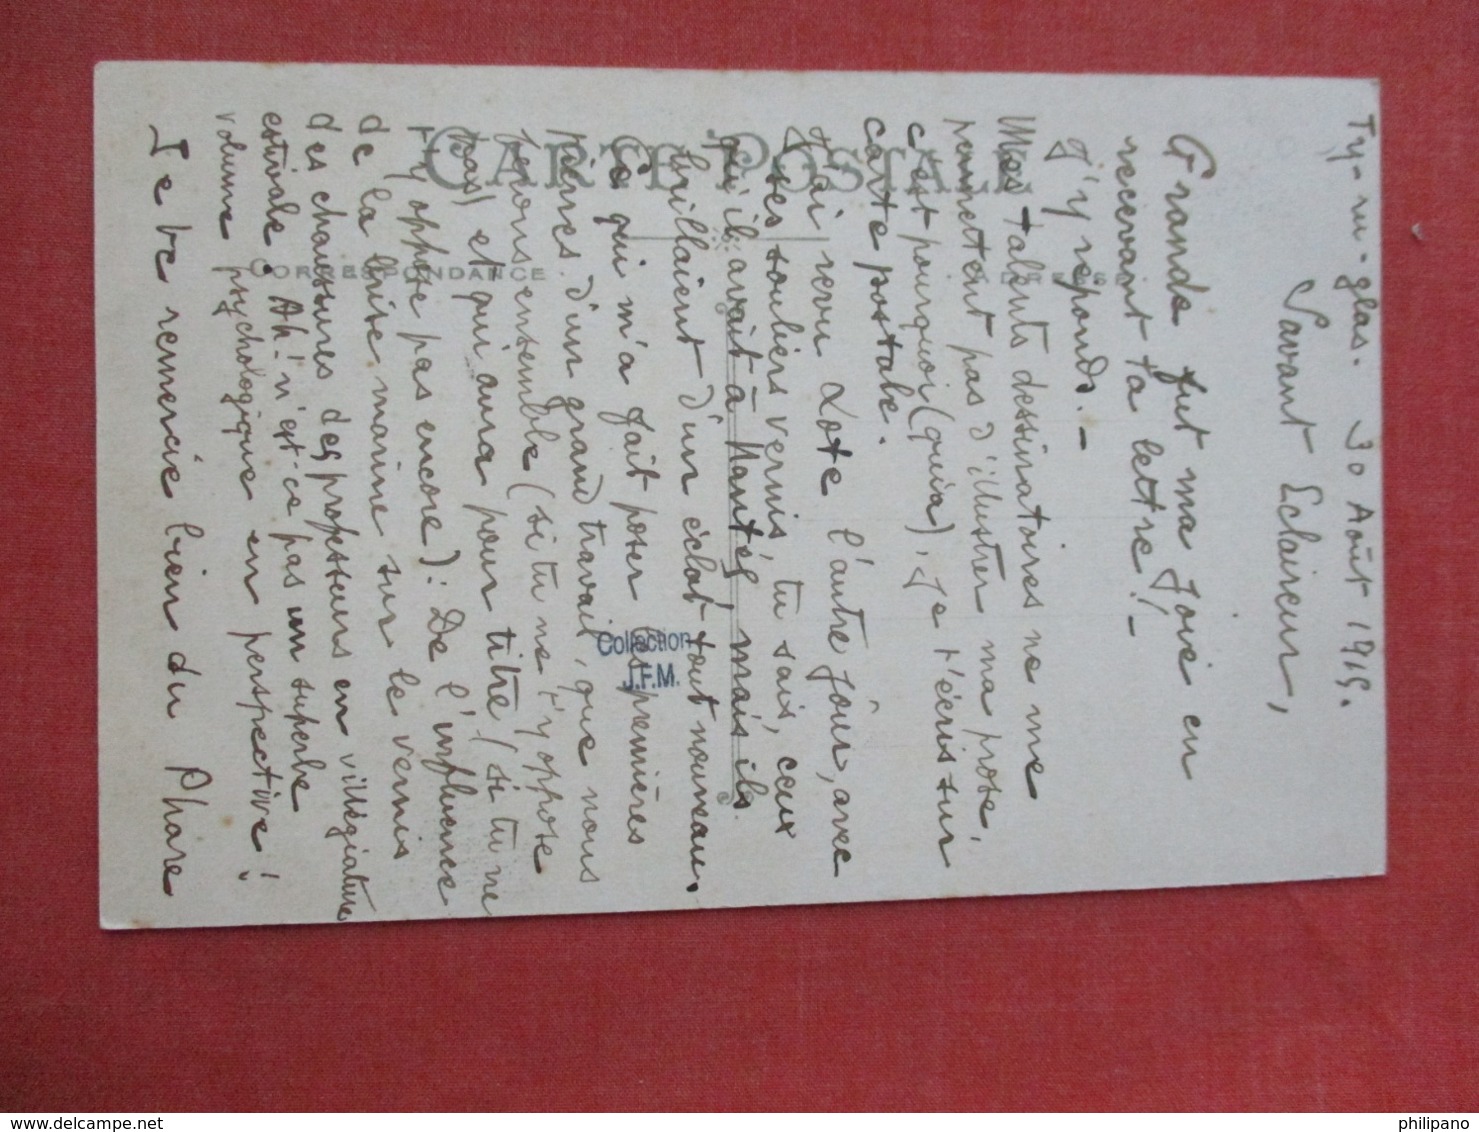 Ty-ru-glas. 30 Août 1915.
Savant Eclaireur,
Grande fut ma Joie en
recevant ta lettre! -
J'y réponds. -
Mes talents dessinatoires ne me
permettent pas d'illustrer ma prose,
c'est pourquoi (quia), Je t'écris sur
carte postale.
J'ai revu Lote l'autre Jour, avec
ses souliers vernis, tu sais, ceux
qu'il avait à Nantes, mais ils
brillaient d'un éclat tout nouveau.
Ce qui m'a fait poser les premières
pierres d'un grand travail, que nous
ferons ensemble (si tu ne t'y oppose
pas) et qui aura pour titre (si tu ne
t'y oppose pas encore): De l'influence
de la brise marine sur le vernis
des chaussures des professeurs en villégiature
estivale. Ah! n'est-ce pas un superbe
volume psychologique en perspective!
Je te remercie bien du Phare
CARTE POSTALE
CORRESPONDANCE
ADRESSE
Collection
J.F.M.
philipano
www.delcampe.net